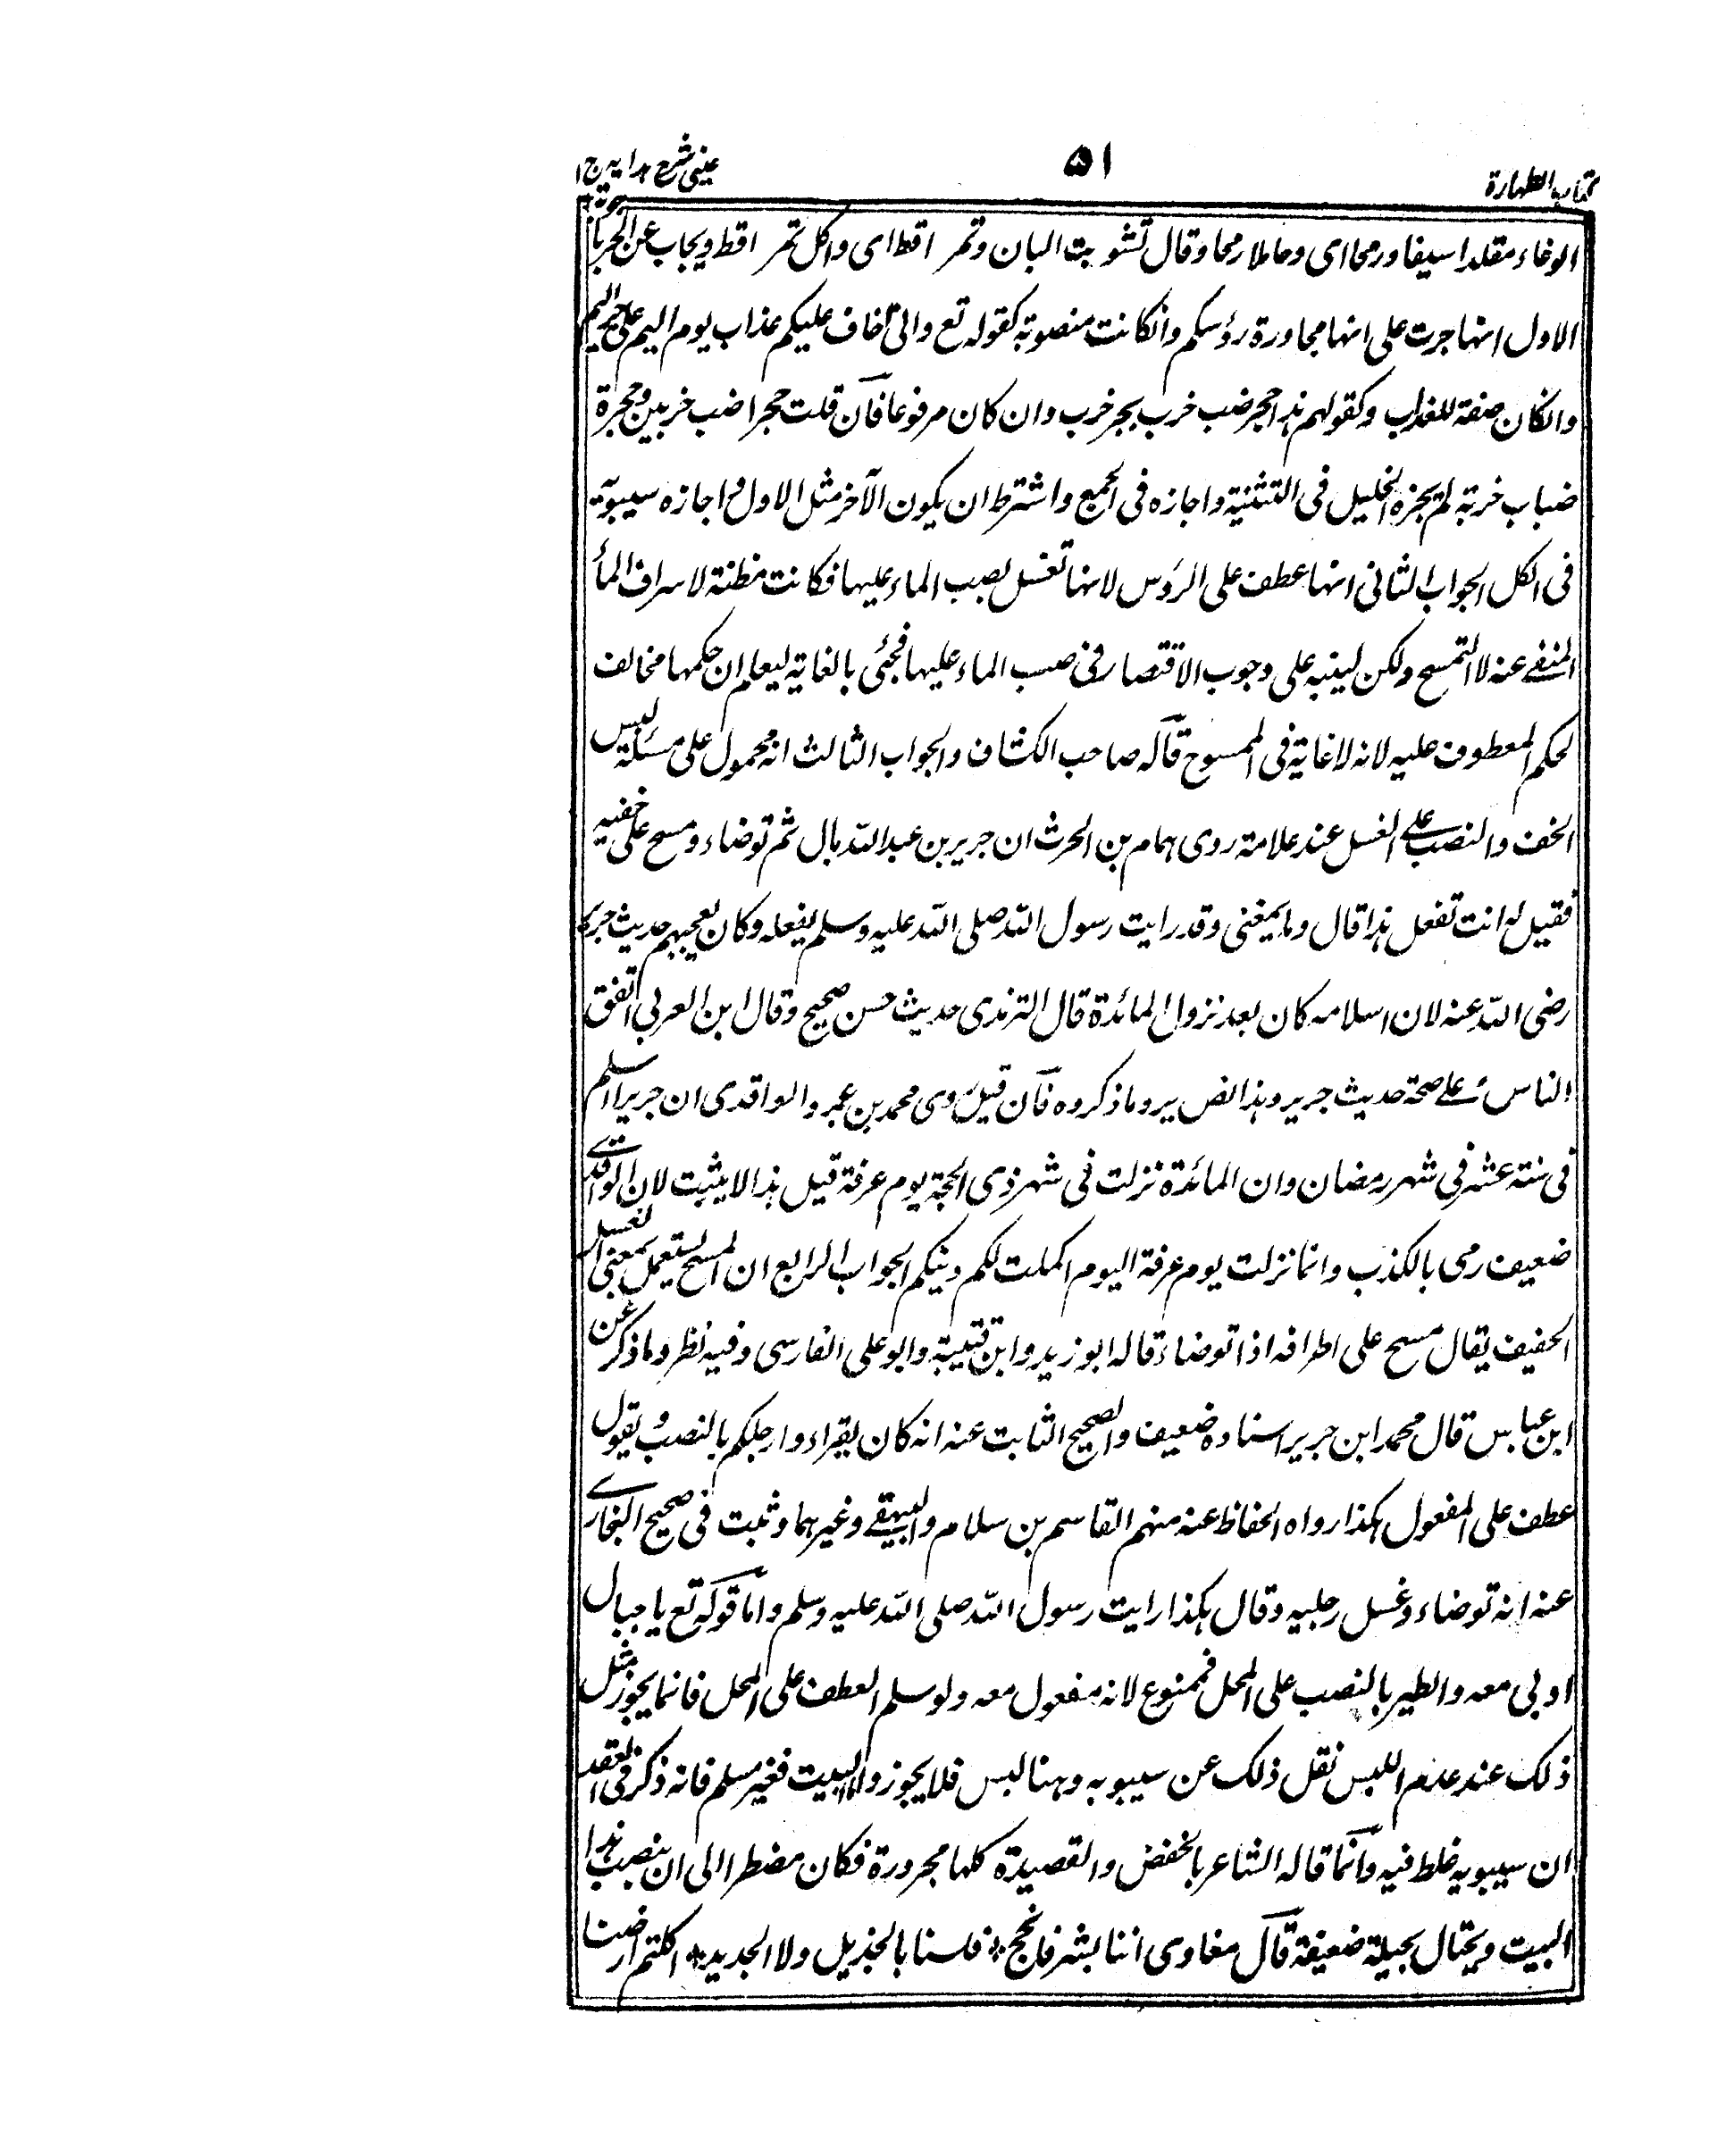 كتاب الطهارة
٥١
عينى شرح هدايه ج ١
الوغاء مقلدا سيفا ورمحا اى وحاملا رمحا وقال تشو بت البان وتمر اقط اى واكل تمر اقط ويجاب عن الجر با جوبة
الاول انها جرت على انها مجاورة رؤسكم وانكانت منصوبة كقوله تع والى اخاف عليكم عذاب يوم اليم على جر اليم
وانكان صفة للعذاب وكقولهم هذا حجر ضب خرب بجر خرب وان كان مرفوعا فان قلت حجرا ضب خربين وحجرة
ضباب خربة لم يجزه الخليل فى التثنية واجازه فى الجمع واشترط ان يكون الآخر مثل الاول واجازه سيبويه
فى الكل الجواب الثانى انها عطف على الرؤس لانها تغسل بصب الماء عليها فكانت مظنة لاسراف الماء
المنهے عنه لا التمسح ولكن لينبه على وجوب الاقتصار فى صب الماء عليها فجئ بالغاية ليعلم ان حكمها مخالف
لحكم المعطوف عليه لانه لا غاية فى الممسوح قاله صاحب الكشاف والجواب الثالث انه محمول على مسئلة لبس
الخف والنصب على الغسل عند علامة روى همام بن الحرث ان جرير بن عبد الله بال ثم توضاء ومسح على خفيه
فقيل له انت تفعل هذا قال وما يمنعنى وقد رايت رسول الله صلى الله عليه وسلم يفعله وكان يعجبهم حديث جرير
رضى الله عنه لان اسلامه كان بعد نزول المائدة قال الترمذى حديث حسن صحيح وقال ابن العربى اتفق
الناس على صحة حديث جرير وهذا نص يرد ما ذكروه فان قيل روى محمد بن عمر والواقدى ان جريرا اسلم
فى سنة عشر فى شهر رمضان وان المائدة نزلت فى شهر ذى الحجة يوم عرفة قيل هذا لا يثبت لان الواقدے
ضعيف رمى بالكذب وانما نزلت يوم عرفة اليوم اكملت لكم دينكم الجواب الرابع ان المسح يستعمل بمعنى الغسل
الخفيف يقال مسح على اطرافه اذا توضاء قاله ابو زيد وابن قتيبة وابو على الفارسى وفيه نظر وما ذكر عن
ابن عباس قال محمد ابن جرير اسناده ضعيف والصحيح الثابت عنه انه كان يقراء وارجلكم بالنصب ويقول
عطف على المفعول هكذا رواه الحفاظ عنه منهم القاسم بن سلام والبيهقے وغيرهما وثبت فى صحيح البخارے
عنه انه توضاء وغسل رجليه وقال هكذا رايت رسول الله صلى الله عليه وسلم واما قوله تع يا جبال
اوبى معه والطير بالنصب على المحل فممنوع لانه مفعول معه ولو سلم العطف على المحل فانما يجوز مثل
ذلك عند عدم اللبس نقل ذلك عن سيبويه وهنا لبس فلا يجوز واما البيت فغير مسلم فانه ذكر فى العقد
ان سيبويه غلط فيه وانما قاله الشاعر بالخفض والقصيدة كلها مجرورة فكان مضطرا الى ان ينصب هذا
البيت ويحتال بحيلة ضعيفة قال معاوى اننا بشر فانجح * فلسنا بالجذيل ولا الجديد * اكلتم ارضنا